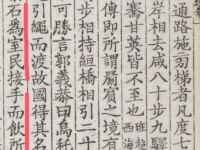 通路施勿梯者凡度七
岸相去咸八十步九
騫甘英皆不至也班超西海
傳即所謂罽賓之境有
步相持絙橋相引二十
可勝言郭義恭曰烏秅
引繩而渡故國得其名
石為室民接手而飲所